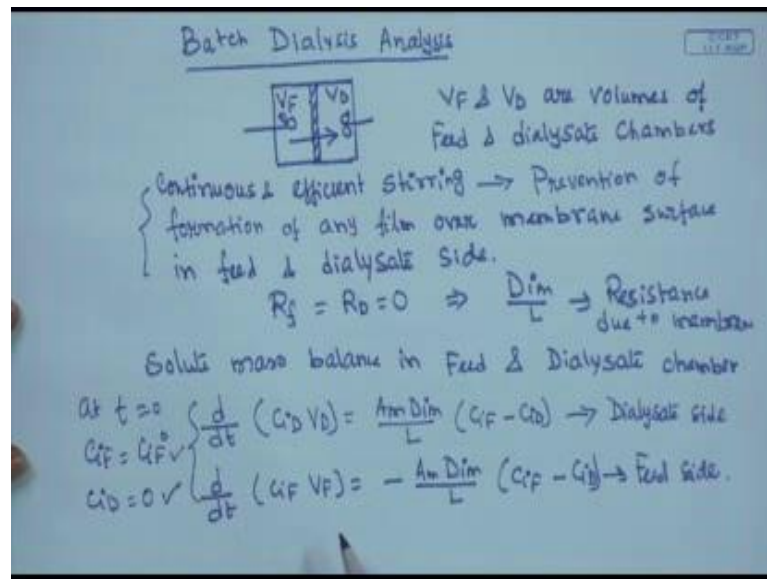 Batch Dialysis Analysis
VF VD
VF & VD are volumes of
Feed & dialysate Chambers
Continuous & efficient stirring → Prevention of
formation of any film over membrane surface
in feed & dialysate side.
Rf = RD = 0 ⇒ Dim/L → Resistance
due to membran
Solute mass balance in Feed & Dialysate chamber
at t=0
CiF = CiF° ✓
CiD = 0 ✓
d/dt (CiD VD) = Am Dim/L (CiF - CiD) → Dialysate side
d/dt (CiF VF) = - Am Dim/L (CiF - CiD) → Feed side.